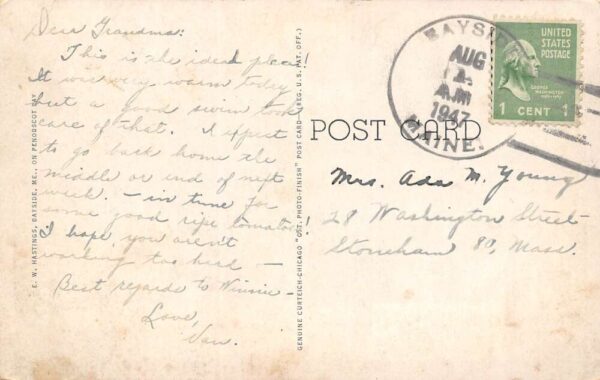 Dear Grandma:
This is the ideal place!
It was very warm today
but a good swim took
care of that. I expect
to go back home the
middle or end of next
week. - in time for
some good ripe tomatoes!
I hope you aren't
working too hard -
Best regards to Winnie -
Love,
E. W. HASTINGS, BAYSIDE, ME., ON PENOBSCOT BAY
GENUINE CURTEICH-CHICAGO "C.T. PHOTO-FINISH" POST CARD—(REG. U.S. PAT. OFF.)
POST CARD
BAYSIDE
AUG
AM
1947
MAINE.
UNITED
STATES
POSTAGE
GEORGE
WASHINGTON
1 CENT 1
Mrs. Ada M. Young
28 Washington Street
Stoneham 80, Mass.